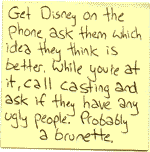 Get Disney on the
phone, ask them which
idea they think is
better. While you're at
it, call casting and
ask if they have any
ugly people. Probably
a brunette.